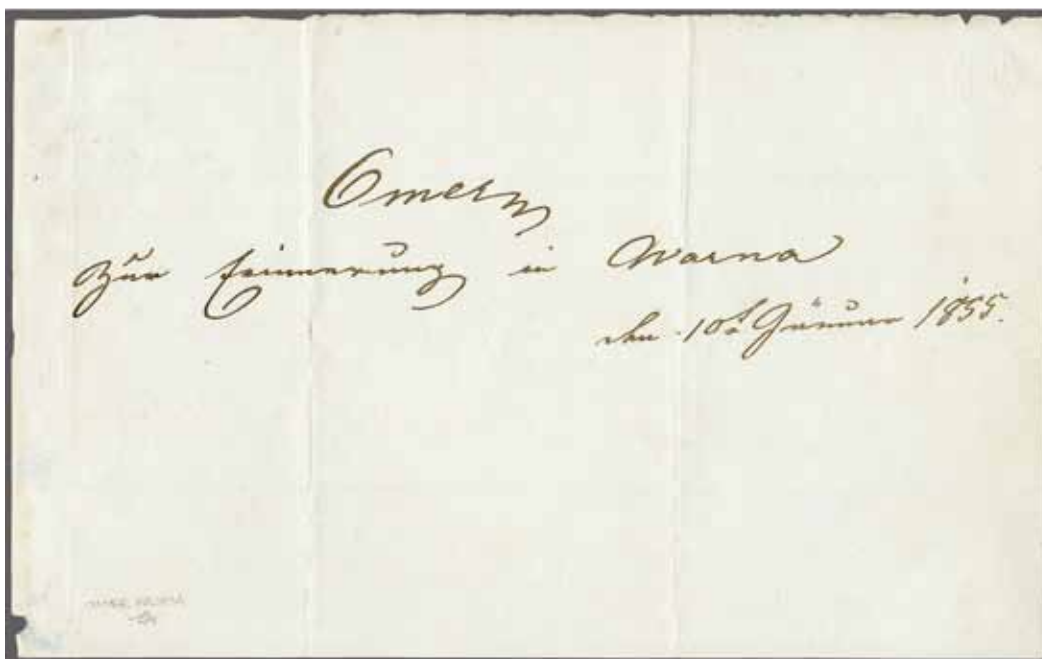 Omer
Zur Erinnerung in Warna
den 10t Januar 1855.